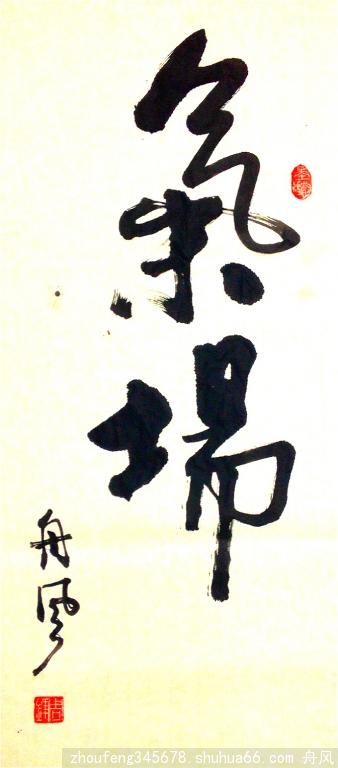 氣場
舟風
zhoufeng345678.shuhua66.com 舟风